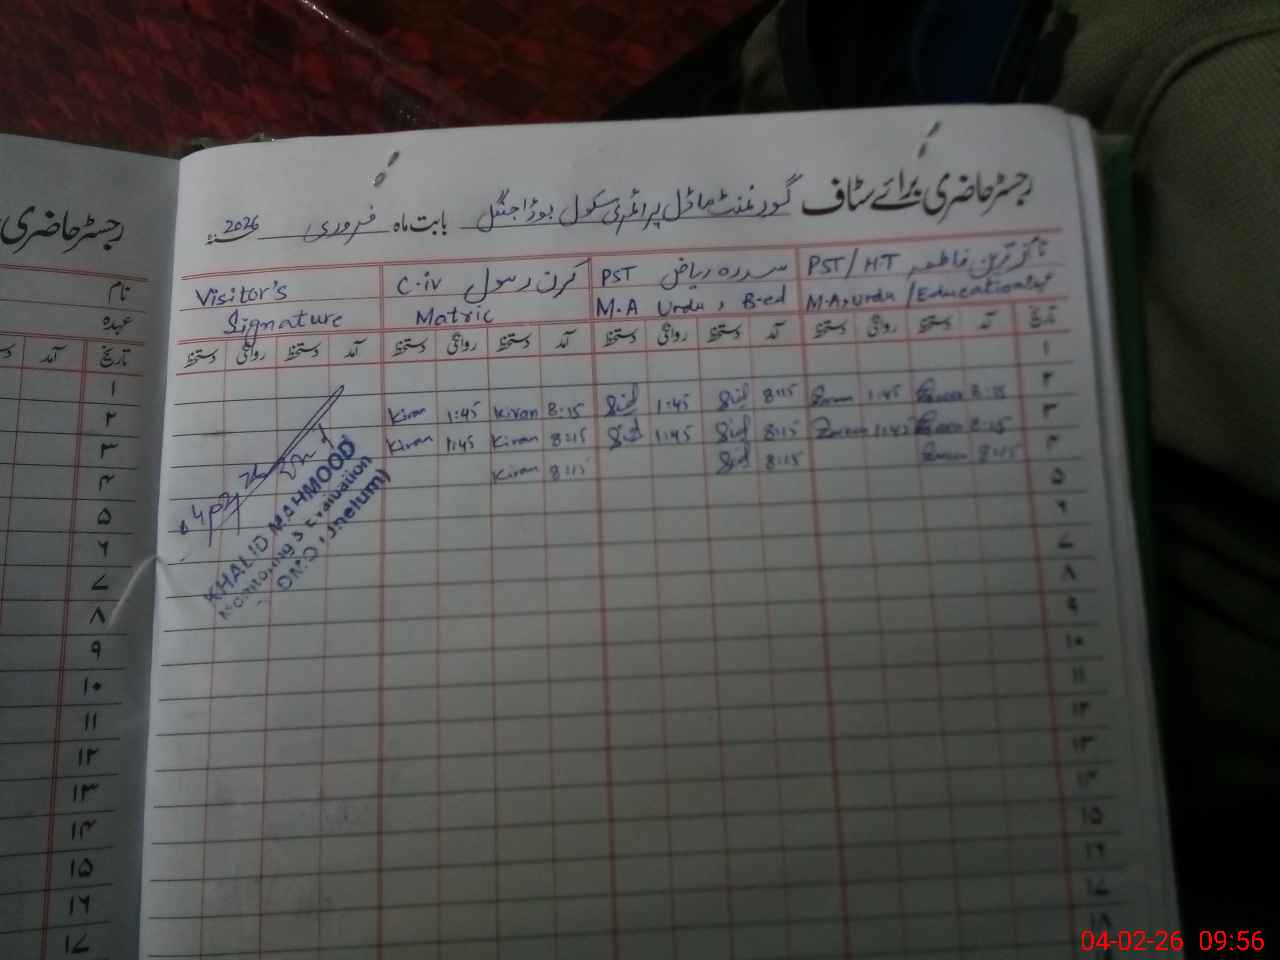 رجسٹر حاضری برائے سٹاف گورنمنٹ ماڈل پرائمری سکول بابت ماہ فروری 2026
رجسٹر حاضری
نام فاطمہ PST/HT سدرہ ریاض PST کرن رسول C-iv Visitor's
عہدہ M.A, Urdu / Education M.A Urdu, B-ed Matric Signature
تاریخ آمد دستخط روانگی دستخط آمد دستخط روانگی دستخط آمد دستخط روانگی دستخط آمد دستخط روانگی دستخط
نام
عہدہ
تاریخ آمد
۱
۲ 8:15 1:45 8:15 1:45 8:15 Kiran 1:45 Kiran
۳ 8:15 1:45 8:15 1:45 8:15 Kiran 1:45 Kiran
۴ 8:15 8:15 8:15 Kiran
۵
۶
۷
۸
۹
۱۰
۱۱
۱۲
۱۳
۱۴
۱۵
۱۶
۱۷
۱۸
KHALID MAHMOOD
Monitoring & Evaluation
(Jhelum)
۱
۲
۳
۴
۵
۶
۷
۸
۹
۱۰
۱۱
۱۲
۱۳
۱۴
۱۵
۱۶
۱۷
04-02-26 09:56